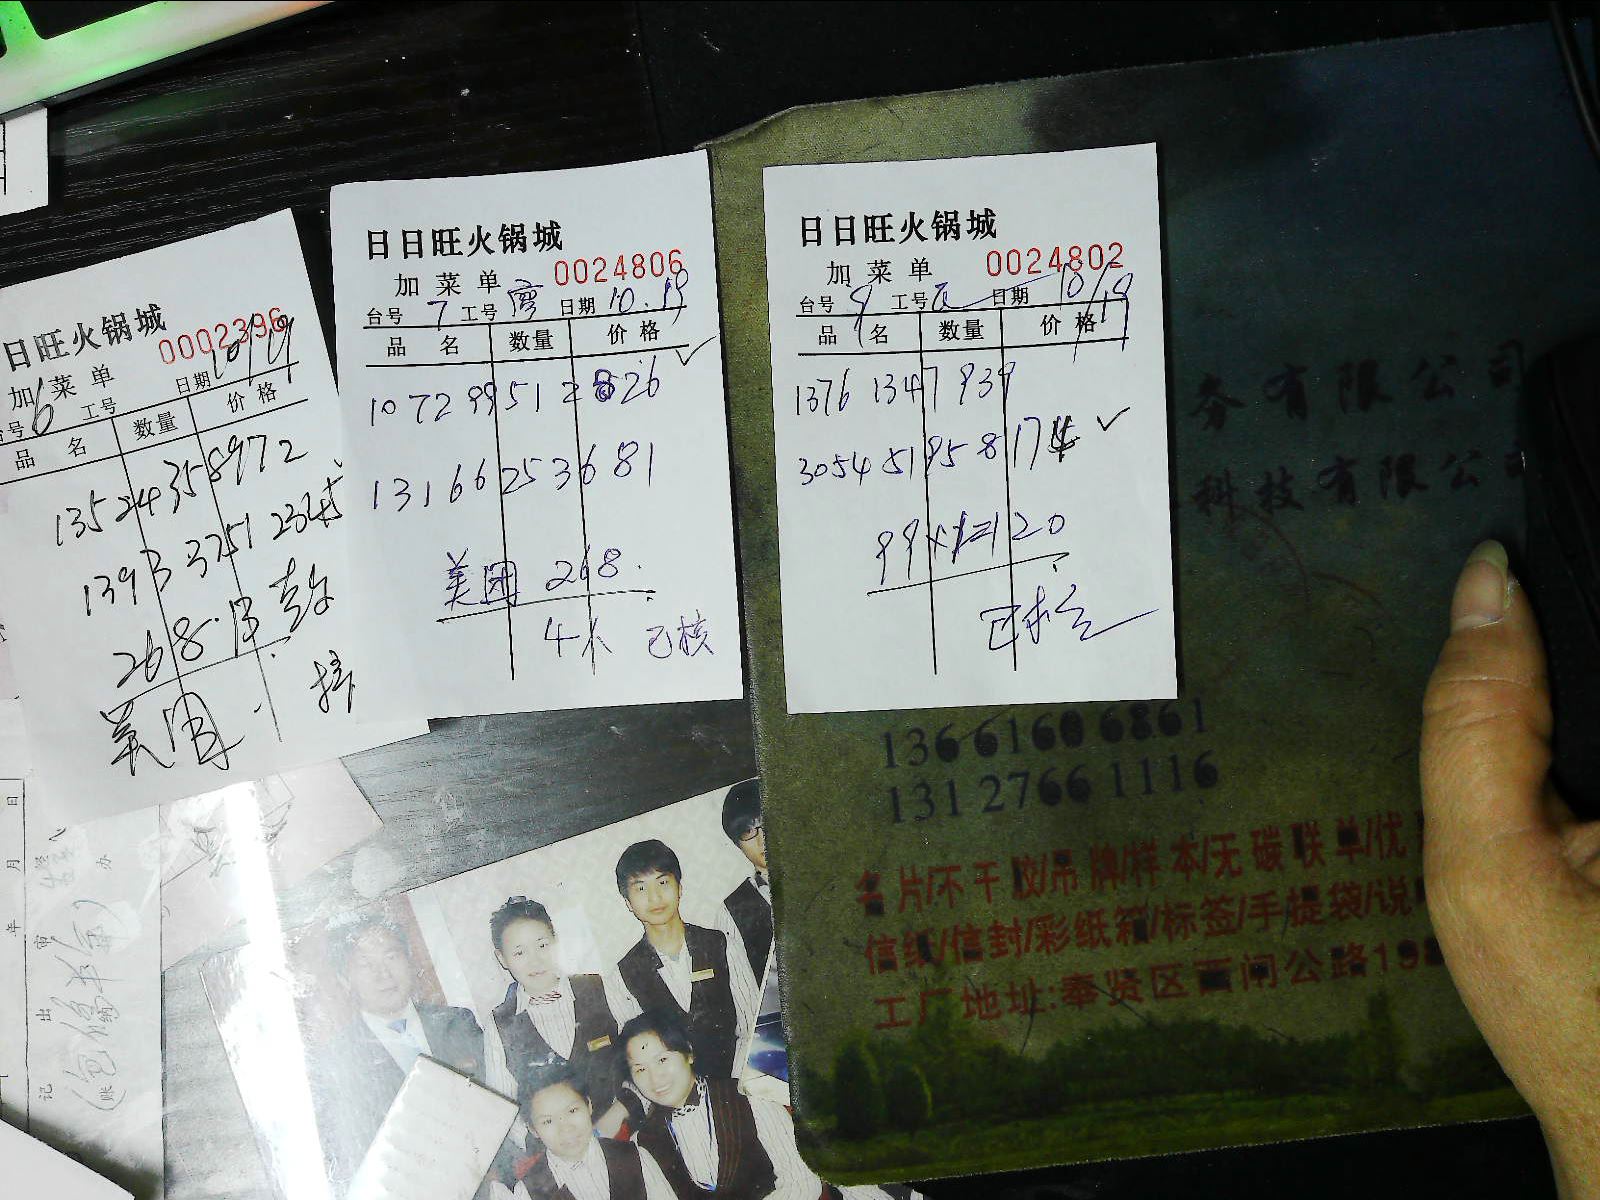 日日旺火锅城
0002396
加菜单
台号 6 工号 日期 10/19
品 名 数量 价格
13524358972
1393 3251 2345
268.
美团
日日旺火锅城
0024806
加菜单
台号 7 工号 日期 10.19
品 名 数量 价格
1072 9951 2826
13166 253681
美团 268.
4个 已核
日日旺火锅城
0024802
加菜单
台号 9 工号 日期 10/19
品 名 数量 价格
1376 1347 939
3054 51 958 174
99 120
已核
务有限公司
科技有限公司
136 6160 6861
131 2766 1116
名片/不干胶/吊牌/样本/无碳联单/优
信纸/信封/彩纸箱/标签/手提袋/说
工厂地址:奉贤区西闸公路19
年 月 日
记 出 审 办